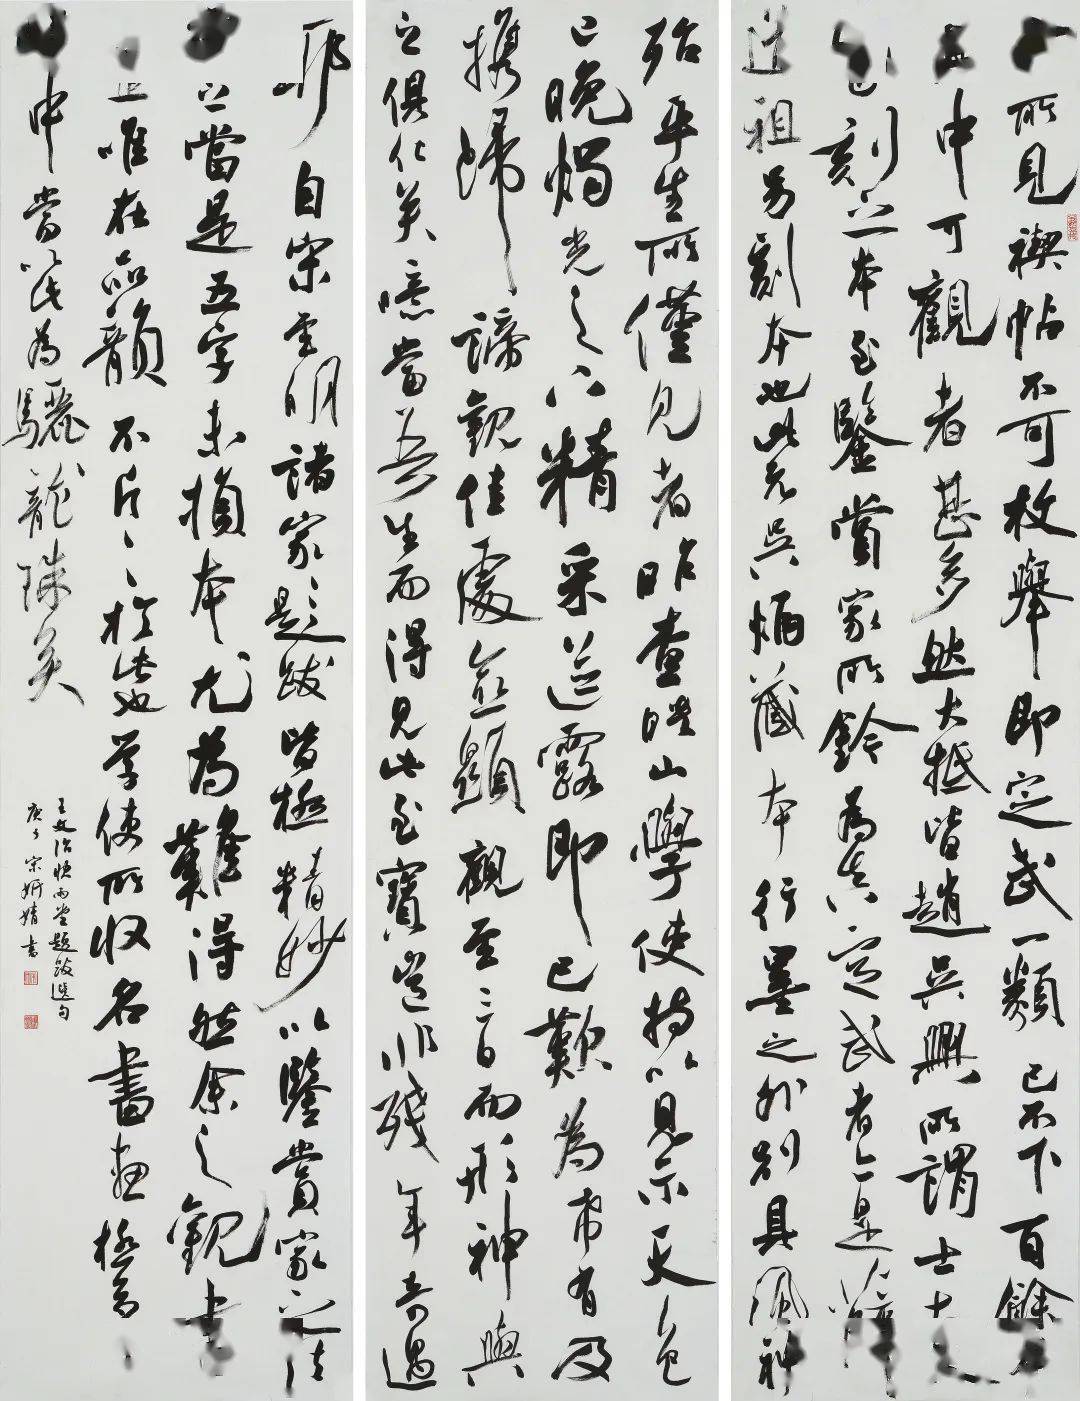 所見禊帖不可枚舉即定武一類已不下百餘
中可觀者甚多然大抵皆趙吳興所謂士
刻之本至鑒賞家所鈐為真定武者亦是
祖另刻本也此元吳炳藏本行墨之外別具風神
殆平生所僅見者昨查映山學使持以見示天色
已晚燭光之下精采迸露即已歎為希有及
攜歸諦觀佳處愈顯觀至三日而形神與
之俱化矣噫當吾生而得見此至寶豈非殘年奇遇
耶自宋至明諸家之題跋皆極精妙以鑒賞家之法
之當是五字未損本尤為難得然余之觀書
唯在品韻不斤斤於此也學使所收名書畫極
中當以此為驪龍珠矣
王文治快雨堂題跋選句
庚子宋妍婧書